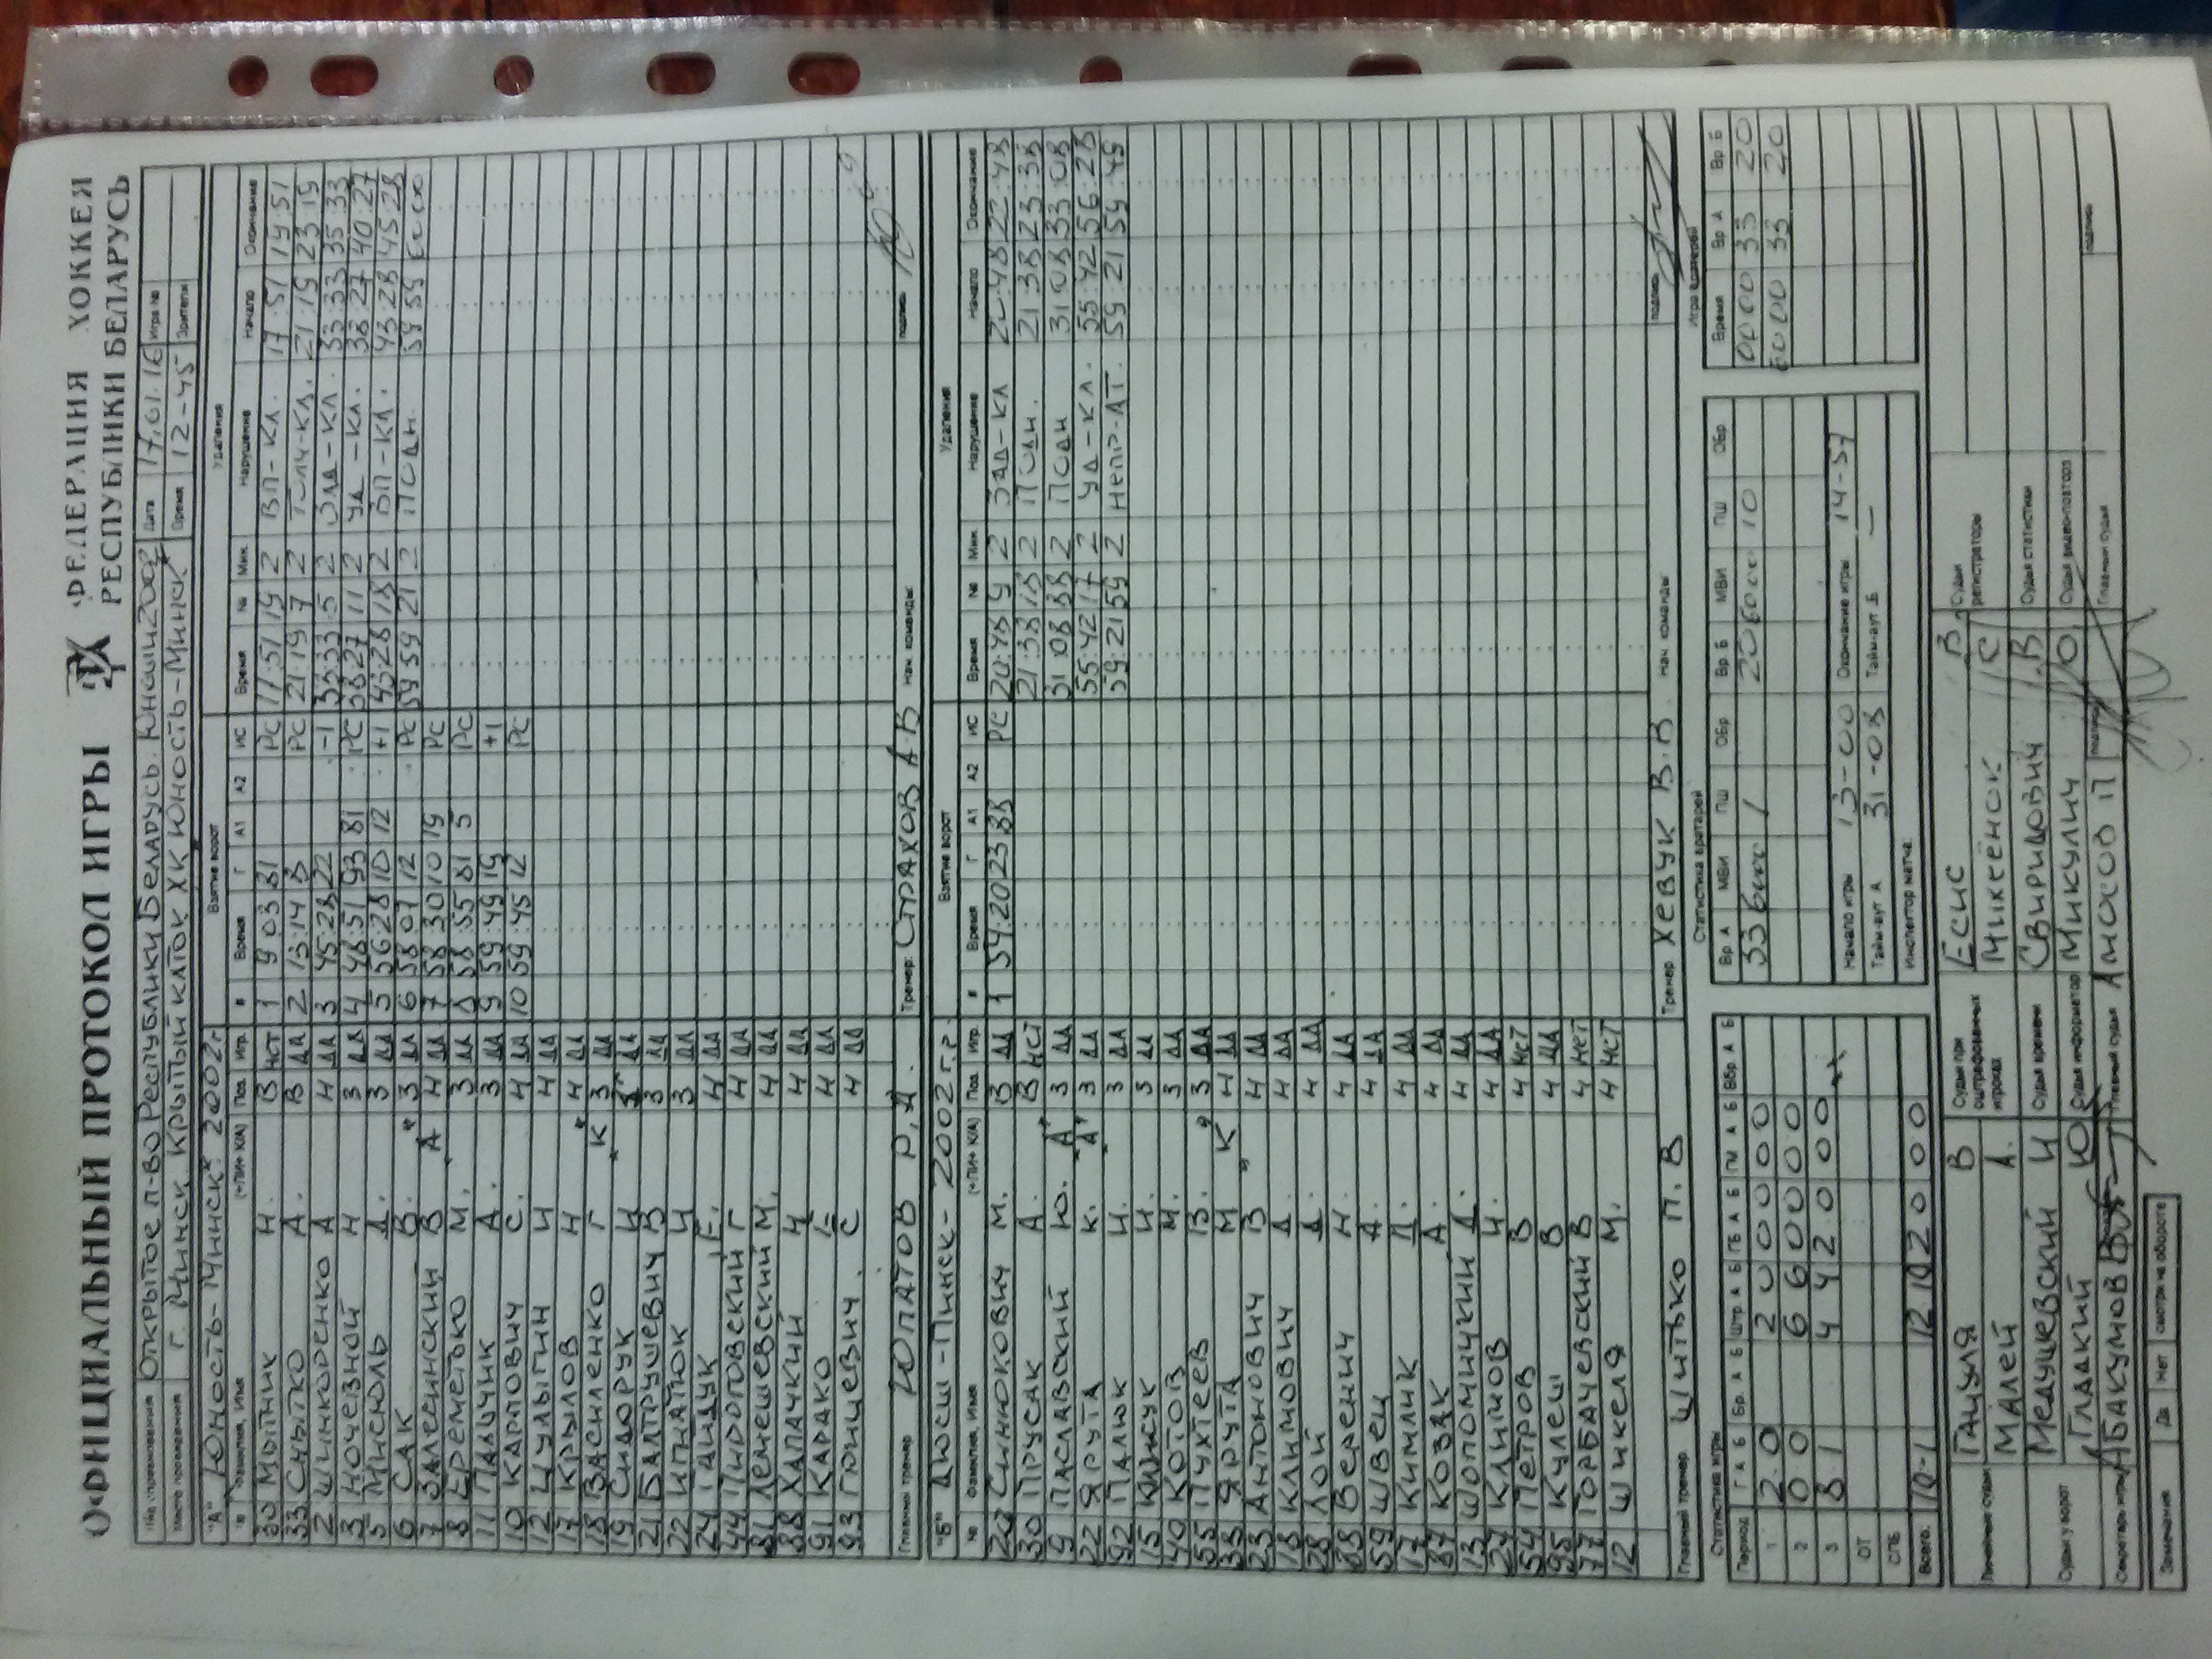 ОФИЦИАЛЬНЫЙ ПРОТОКОЛ ИГРЫ
ФЕДЕРАЦИЯ ХОККЕЯ
РЕСПУБЛИКИ БЕЛАРУСЬ
Открытое п-во Республики Беларусь. Юноши 2002 Дата 17.01.16 Игра №
Место проведения г. Минск Крытый каток ХК Юность-Минск Время 12-45 Зрители
"А" Юность-Минск 2002г. Взятие ворот Удаления
№ Фамилия, Имя (*ПИ+ К/А) Поз Игр # Время Г А1 А2 ИС Время № Мин. Нарушение Начало Окончание
30 Мытник Н. В нет 1 9 03 81 РС 17:51 19 2 ВП-кл. 17:51 19:51
33 Снытко А. В да 2 13 14 8 РС 21 19 7 2 Толч-кл. 21:19 23 19
2 Шинкоренко А Н да 3 45 28 22 -1 33 33 5 2 33 33 35 33
3 Ночезной Н З да 4 48 51 93 81 РС 38 27 11 2 Уд-кл. 38 27 40 27
5 Мисюль Д. З да 5 56 28 10 12 +1 43 28 18 2 ВП-кл. 43 28 45 28
6 Сак В. З да 6 58 07 12 РС 59 59 21 2 Подн. 59 59 60 00
7 Залесинский В А Н да 7 58 30 10 19 РС
8 Ереметько М. З да 8 58 55 81 5 РС
11 Пальчик А. З да 9 59 49 19 +1
10 Карпович С. Н да 10 59 45 12 РС
12 Цулыгин И Н да
17 Крылов Н Н да
18 Василенко Г К З да
19 Сидорук И З да
21 Балтрушевич В З да
22 Игнатюк И З да
24 Гайдук Е. Н да
44 Пироговский Г Н да
81 Лемешевский М. Н да
88 Хапачкий Н Н да
91 Карако Н да
93 Грицевич. С Н да
Главный тренер Юпатов Р.А. Тренер: Страхов А.В Нач. команды: подпись
"Б" Дюсш-Пинск-2002г.р. Взятие ворот Удаления
№ Фамилия, Имя (*ПИ+ К/А) Поз Игр # Время Г А1 А2 ИС Время № Мин. Нарушение Начало Окончание
20 Синюкович М. В да 1 54:20 23 88 РС 20:48 9 2 Зад-кл 20:48 22:48
30 Прусак А. В нет 21:38 18 2 Подн. 21:38 23:38
9 Паславский Ю. А З да 31 08 88 2 Подн 31 08 33:08
22 Ярута К. А З да 55:42 17 2 Уд-кл. 55:42 56:28
92 Палюк И. З да 59:21 59 2 Непр-ат. 59 21 59:45
15 Кинсук И. З да
40 Котов М. З да
55 Пухтеев В. З да
38 Ярута М К Н да
23 Антонович В Н да
18 Климович Д. Н да
28 Лой Д. Н да
88 Веренич Н. Н да
59 Швец А. Н да
17 Кимлик Д. Н да
87 Козак А. Н да
13 Шопомицкий Д. Н да
27 Климов И. Н да
54 Петров В Н нет
95 Кулеш В Н да
77 Горбачевский В Н нет
12 Шикеля М. Н нет
Главный тренер Шитько П.В Тренер Хевук В.В. Нач. команды: подпись
Статистика игры Статистика вратарей Игра вратарей
Период Г А Б Бр. А Б Штр. А Б ГБ А Б ГМ А Б Вбр. А Б Вр А МВИ ПШ ОБр Вр Б МВИ ПШ ОБр Время Вр А Вр Б
1 2 0 2 0 0 0 0 0 33 6000 1 20 6000 10 00 00 33 20
2 0 0 6 6 0 0 0 0 60 00 33 20
3 8 1 4 4 2 0 0 0
ОТ Начало игры 13-00 Окончание игры 14-57
СПБ Тайм-аут А 31-08 Тайм-аут Б —
Всего: 10-1 12 10 2 0 0 0 Инспектор матча:
Линейные судьи Гацуля В Судьи при оштрафованных игроках Есис В Судьи регистраторы
Малей А. Михеёнок
Судьи у ворот Медушевский И Судья времени Свиридович В Судья статистики
Гладкий Ю Судья информатор Микулич О Судья видеоповтора
Секретарь игры Абакумов В Главный судья Амосов П подпись Главный судья подпись
Замечания Да нет смотри на обороте